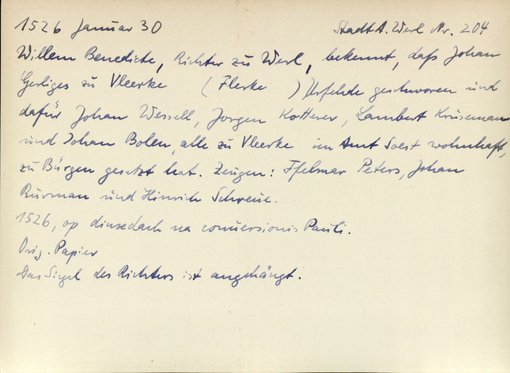 1526 Januar 30 StadtA. Werl Nr. 204
Willem Benedicte, Richter zu Werl, bekennt, daß Johan
Gerliges zu Vleerke ( Flerke ) Urfehde geschworen und
dafür Johan Wessell, Jorgen Kotterer, Lambert Kruseman
und Johan Bolen, alle zu Vleerke im Amt Soest wohnhaft,
zu Bürgen gesetzt hat. Zeugen: Peters, Johan
Burman und Hinrich
1526, op dinxedach na conuersionis Pauli.
Orig. Papier
Das Siegel des Richters ist angehängt.